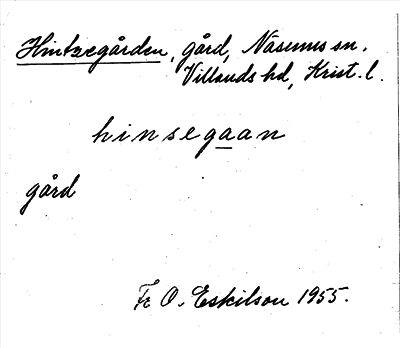 Hintzegården, gård, Nasums sn.
Villands hd, Krist. l.
hinsegaan
gård
Fr O. Eskilson 1955.